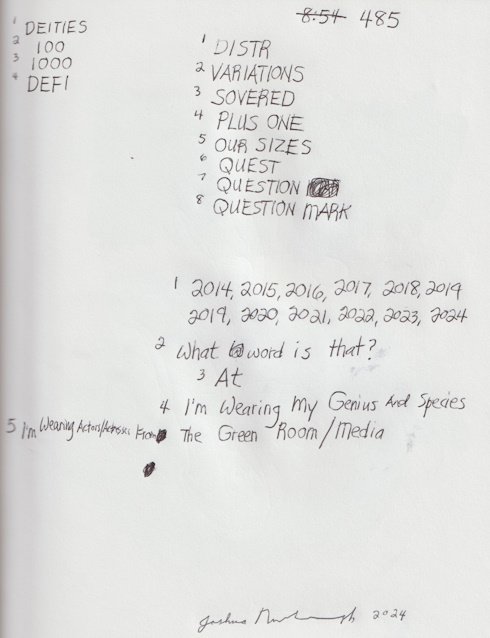 8:54 485
1 DEITIES
2 100
3 1000
4 DEFI
1 DISTR
2 VARIATIONS
3 SOVERED
4 PLUS ONE
5 OUR SIZES
6 QUEST
7 QUESTION
8 QUESTION MARK
1 2014, 2015, 2016, 2017, 2018, 2019
2019, 2020, 2021, 2022, 2023, 2024
2 What word is that?
3 At
4 I'm Wearing My Genius And Species
5 I'm Wearing Actors/Actresses From The Green Room/Media
Joshua 2024